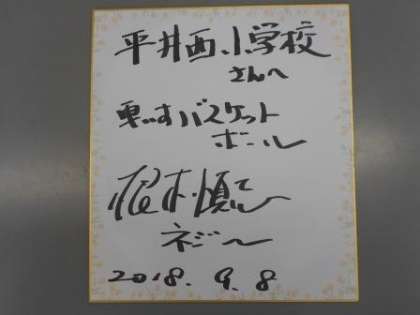 平井西小学校
さんへ
車いすバスケット
ボール
根木慎志
ネジー
2018. 9. 8